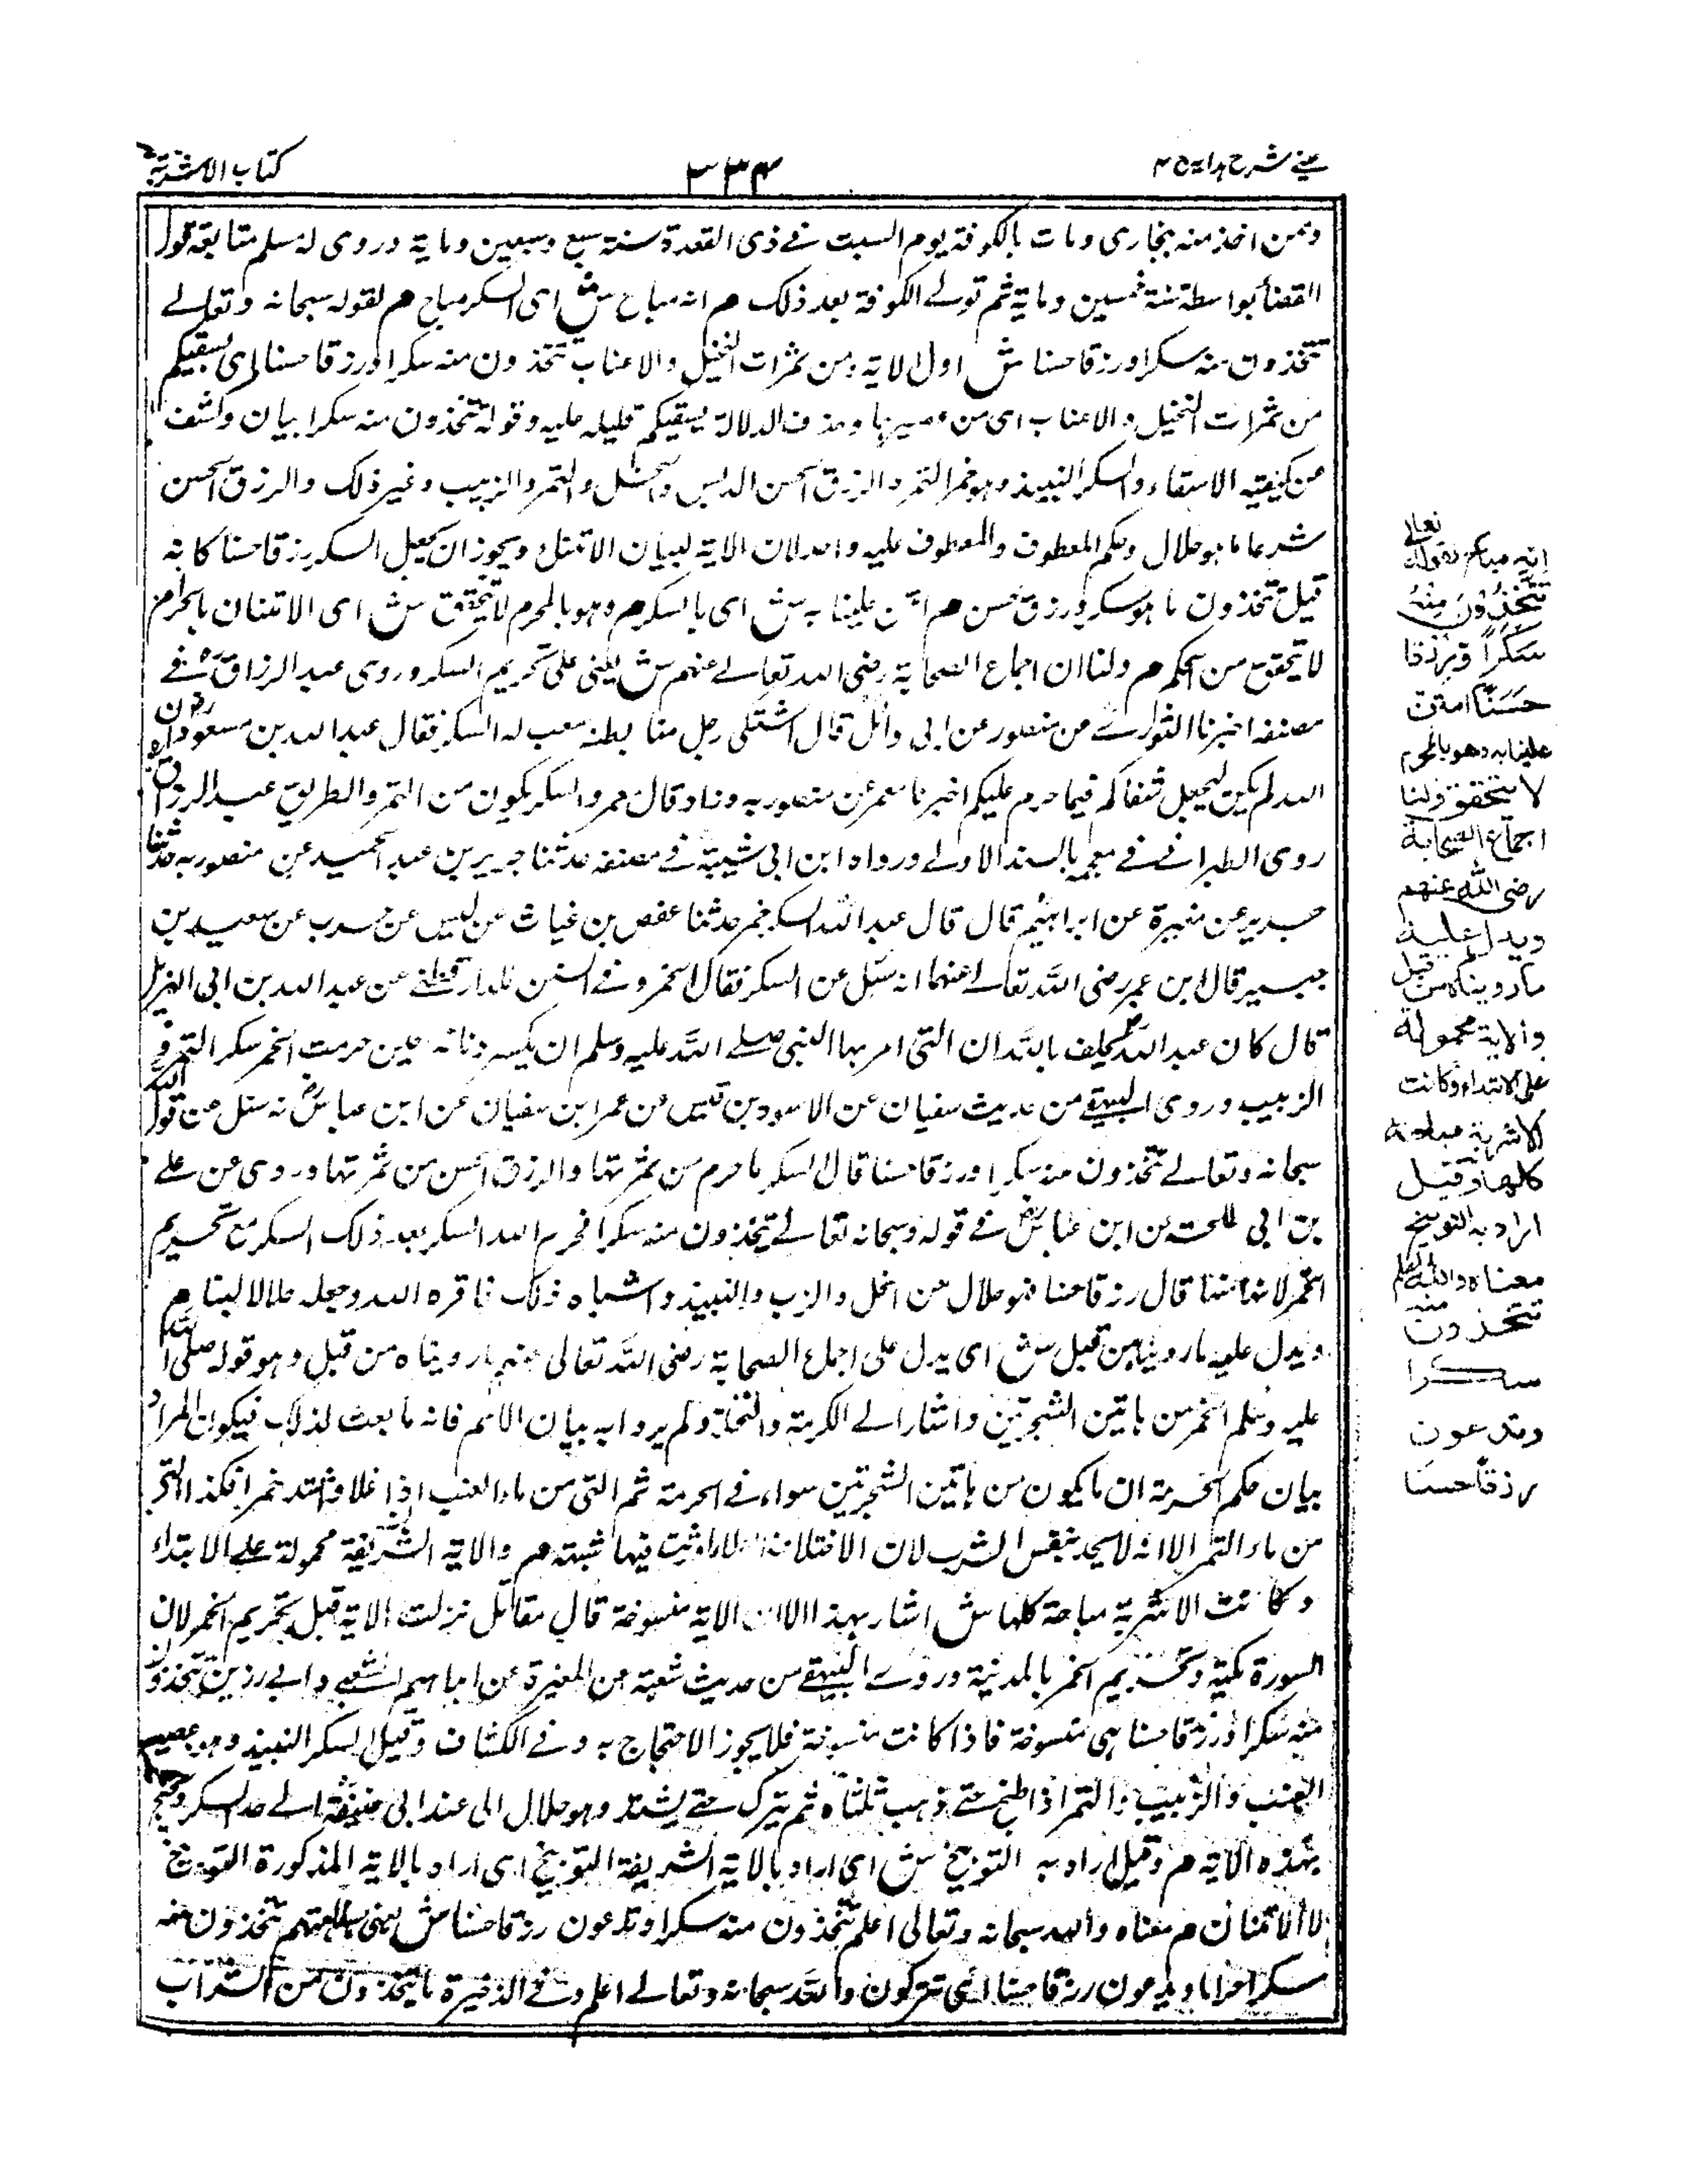 عيني شرح هدايه ج ٤
٣٣٤
كتاب الاشربة
وممن اخذ منه بخارى ومات بالكوفة يوم السبت في ذى القعدة سنة سبع وسبعين وماية وروى له مسلم متابعة قول
القضأ بواسطة سنة خمسين وماية ثم تولے الكوفة بعد ذلك م انه مباح ش اى السكر مباح م لقوله سبحانه وتعالے
تتخذون منه سكرا ورزقا حسنا ش اول الاية ومن ثمرات النخيل والاعناب تتخذون منه سكرا ورزقا حسنا اى يسقيكم
من ثمرات النخيل والاعناب اى من عصيرها وحذف الدلالة يسقيكم قليله عليه وقوله تتخذون منه سكرا بيان وكشف
من كيفية الاسقاء والسكر النبيذ وهو خمر التمر والرزق الحسن الدبس والخل والتمر والزبيب وغير ذلك والرزق الحسن
شرعا ما هو حلال وحكم المعطوف والمعطوف عليه واحد لان الاية لبيان الامتنان ويجوز ان يجعل السكر رزقا حسنا كانه
قيل تتخذون ما هو سكر ورزق حسن م امتن علينا به ش اى بالسكر م وهو بالمحرم لا يتحقق ش اى الامتنان بالحرام
لا يتحقق من الحكم م ولنا ان اجماع الصحابة رضى الله تعالے عنهم ش يعنى على تحريم السكر وروى عبد الرزاق في
مصنفه اخبرنا الثورے عن منصور عن ابى وائل قال اشتكى رجل منا بطنه فنعت له السكر فقال عبد الله بن مسعود ان
الله لم يكن ليجعل شفاكم فيما حرم عليكم اخبرنا معمر عن منصور به وزاد وقال معمر والسكر يكون من التمر والطريق عبد الرزاق
روى الطبرانے في معجمه بالسند الاولے ورواه ابن ابى شيبة في مصنفه حدثنا جرير بن عبد الحميد عن منصور به حدثنا
جرير عن مغيرة عن ابراهيم قال قال عبد الله السكر خمر حدثنا حفص بن غياث عن ليث عن حرب عن سعيد بن
جبير قال ابن عمر رضى الله تعالے عنهما انه سئل عن السكر فقال الخمر وفے السنن للدارقطنے عن عبد الله بن ابى الهزيل
قال كان عبد الله يحلف بالله ان التى امر بها النبى صلے الله عليه وسلم ان يكسر دنانه حين حرمت الخمر سكر التمر و
الزبيب وروى البيهقے من حديث سفيان عن الاسود بن قيس عن عمر ابن سفيان عن ابن عباس رض انه سئل عن قول الله
سبحانه وتعالے تتخذون منه سكرا ورزقا حسنا قال السكر ما حرم من ثمرتها والرزق الحسن من ثمرتها وروى عن علے
بن ابى طلحة عن ابن عباس رض في قوله وسبحانه تعالے تتخذون منه سكرا فحرم الله السكر بعد ذلك السكر مع تحريم
الخمر لانها منها قال رزقا حسنا فهو حلال من الخل والزب والنبيذ واشباه ذلك فاقره الله وجعله حلالا لبنا م
ويدل عليه ما روينا من قبل ش اى يدل على اجماع الصحابة رضى الله تعالى عنهم ما رويناه من قبل وهو قوله صلى الله
عليه وسلم الخمر من هاتين الشجرتين واشار الے الكرمة والنخلة ولم يرد به بيان الاسم فانه ما بعث لذلك فيكون المراد
بيان حكم الحرمة ان ما يكون من هاتين الشجرتين سواء في الحرمة ثم التى من ماء العنب اذا غلا واشتد خمر افكذا التى
من ماء التمر الا انه لا يحد بنفس الشرب لان الاختلاف ثبت فيها شبهة م والاية الشريفة محمولة علے الابتداء
وكانت الاشربة مباحة كلها ش اشار بهذا الا ان الاية منسوخة قال مقاتل نزلت الاية قبل تحريم الخمر لان
السورة مكية وتحريم الخمر بالمدينة وروے البيهقے من حديث شعبة عن المغيرة عن ابراهيم الشعبے وابے رزين تتخذون
منه سكرا ورزقا حسنا هى منسوخة فاذا كانت منسوخة فلا يجوز الاحتجاج به وفے الكشاف وقيل السكر النبيذ وهو عصير
العنب والزبيب والتمر اذا طبخ حتے ذهب ثلثاه ثم يترك حتے يشتد وهو حلال الى عند ابى حنيفة الے حد السكر ويحتج
بهذه الاية م وقيل اراد به التوبيخ ش اى اراد بالاية الشريفة التوبيخ اى اراد بالاية المذكورة التوبيخ
لا الامتنان م معناه والله سبحانه وتعالى اعلم تتخذون منه سكرا وتدعون رزقا حسنا ش يعنى تتخذون منه
سكرا حراما وتدعون رزقا حسنا اى تتركون والله سبحانه وتعالے اعلم وفے الذخيرة ما يتخذون من الشراب
تعالى
انه مباح لقوله
تتخذون منه
سكرا ورزقا
حسنا امتن
علينا به وهو بالمحرم
لا يتحقق ولنا
اجماع الصحابة
رضى الله عنهم
ويدل عليه
ما رويناه من قبل
والاية محمولة
على الابتداء وكانت
الاشربة مباحة
كلها وقيل
اراد به التوبيخ
معناه والله اعلم
تتخذون منه
سكرا
وتدعون
رزقا حسنا